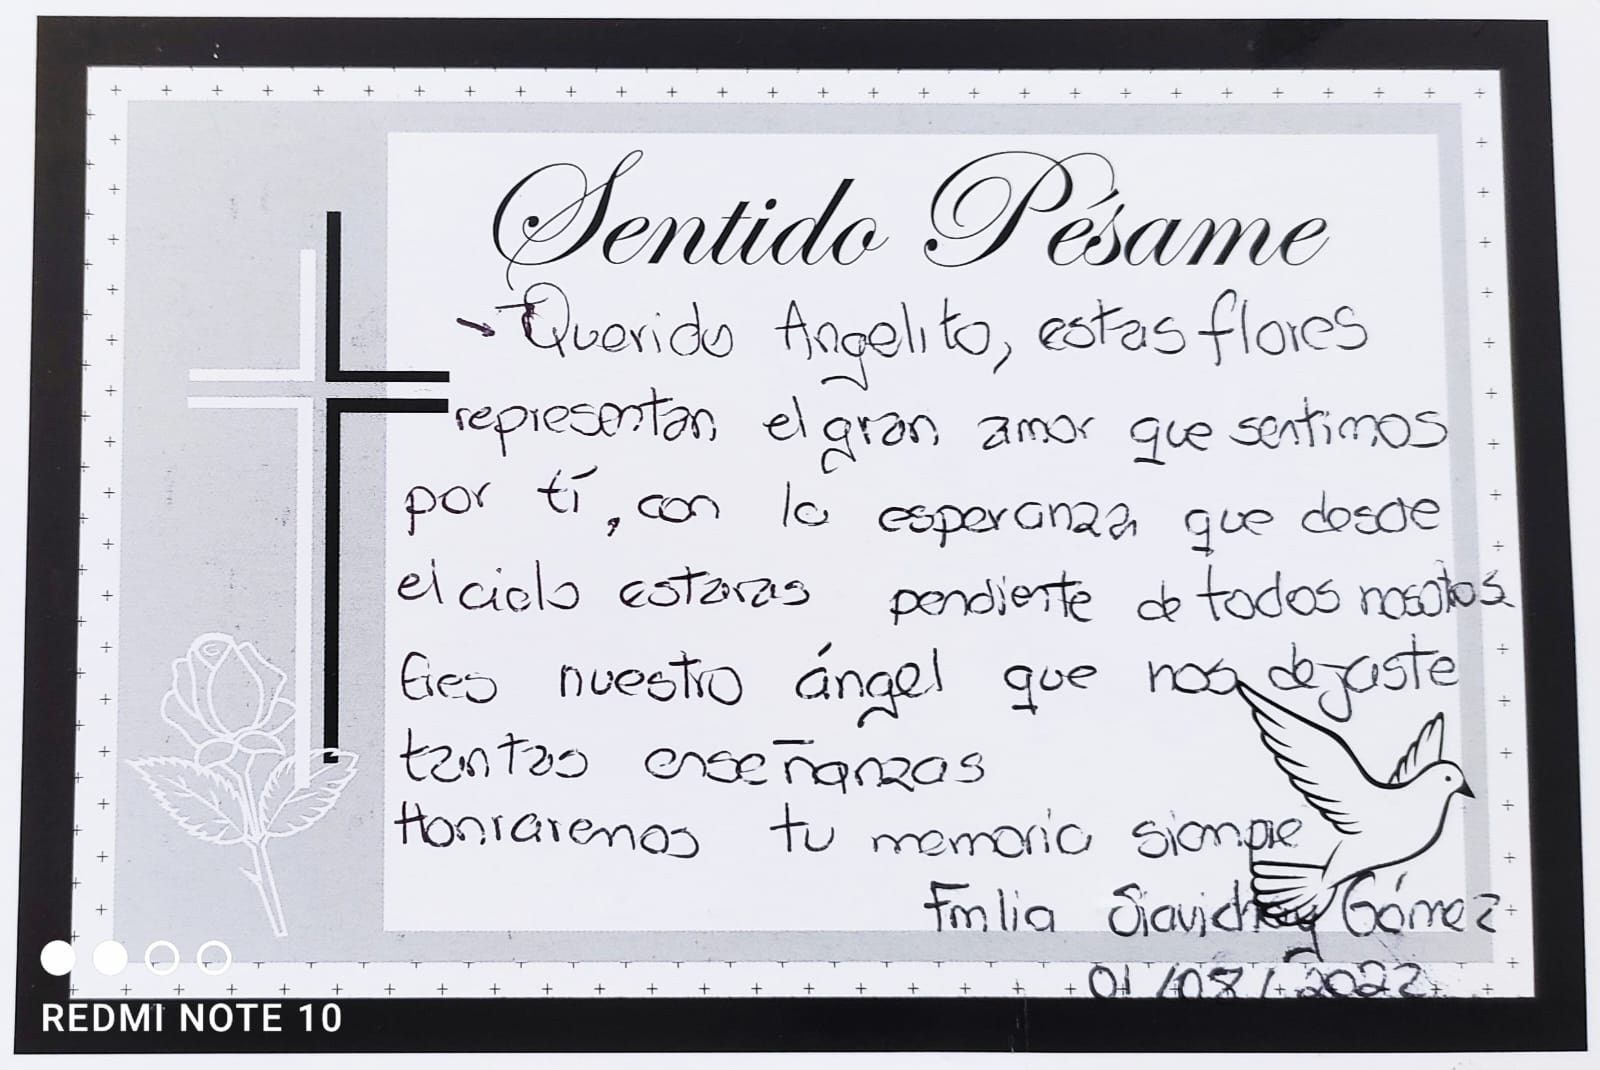 Sentido Pésame
Querido Angelito, estas flores
representan el gran amor que sentimos
por tí, con la esperanza que desde
el cielo estaras pendiente de todos nosotos
Eres nuestro ángel que nos dejaste
tantas enseñanzas
Honraremos tu memoria siempre
Emlia Siavichay Gómez
01/08/2022
REDMI NOTE 10